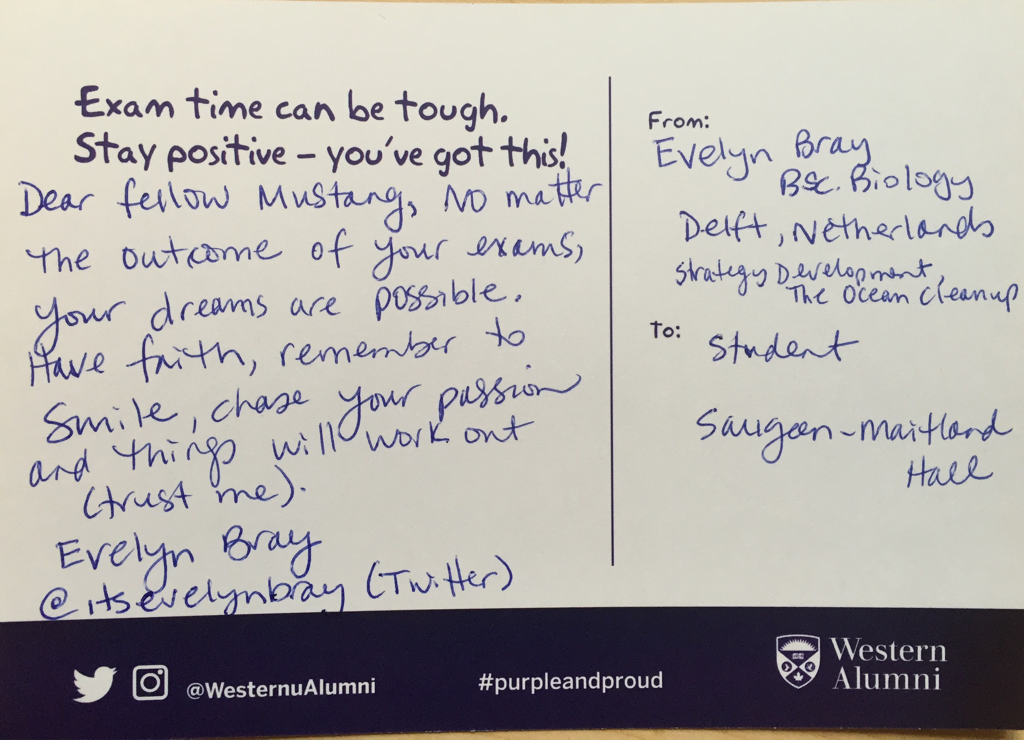 Exam time can be tough.
Stay positive – you've got this!
Dear fellow Mustang, No matter
the outcome of your exams,
your dreams are possible.
Have faith, remember to
smile, chase your passion
and things will work out
(trust me).
Evelyn Bray
@itsevelynbray (Twitter)
From:
Evelyn Bray
BSc. Biology
Delft, Netherlands
Strategy Development,
The Ocean Cleanup
To:
Student
Saugeen-Maitland
Hall
@WesternuAlumni
#purpleandproud
Western
Alumni